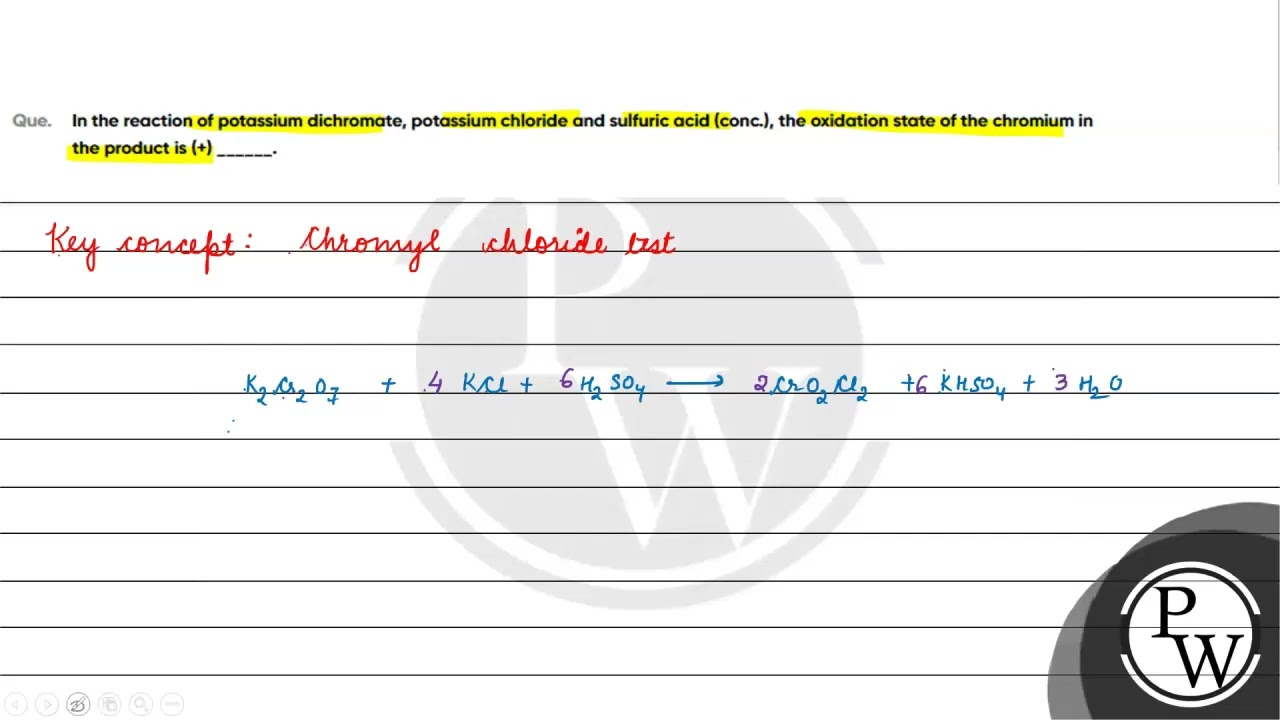 Que. In the reaction of potassium dichromate, potassium chloride and sulfuric acid (conc.), the oxidation state of the chromium in
the product is (+) ______.
Key concept: Chromyl chloride test
K₂Cr₂O₇ + 4 KCl + 6 H₂SO₄ ⟶ 2 CrO₂Cl₂ + 6 KHSO₄ + 3 H₂O
P
W
P
W